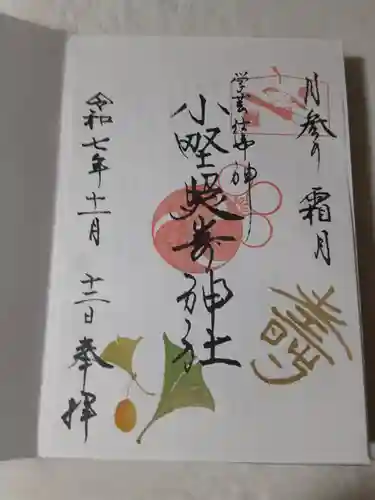 月参り 霜月
学芸仕事神
小野照崎神社
令和七年十一月
十二日 奉拝